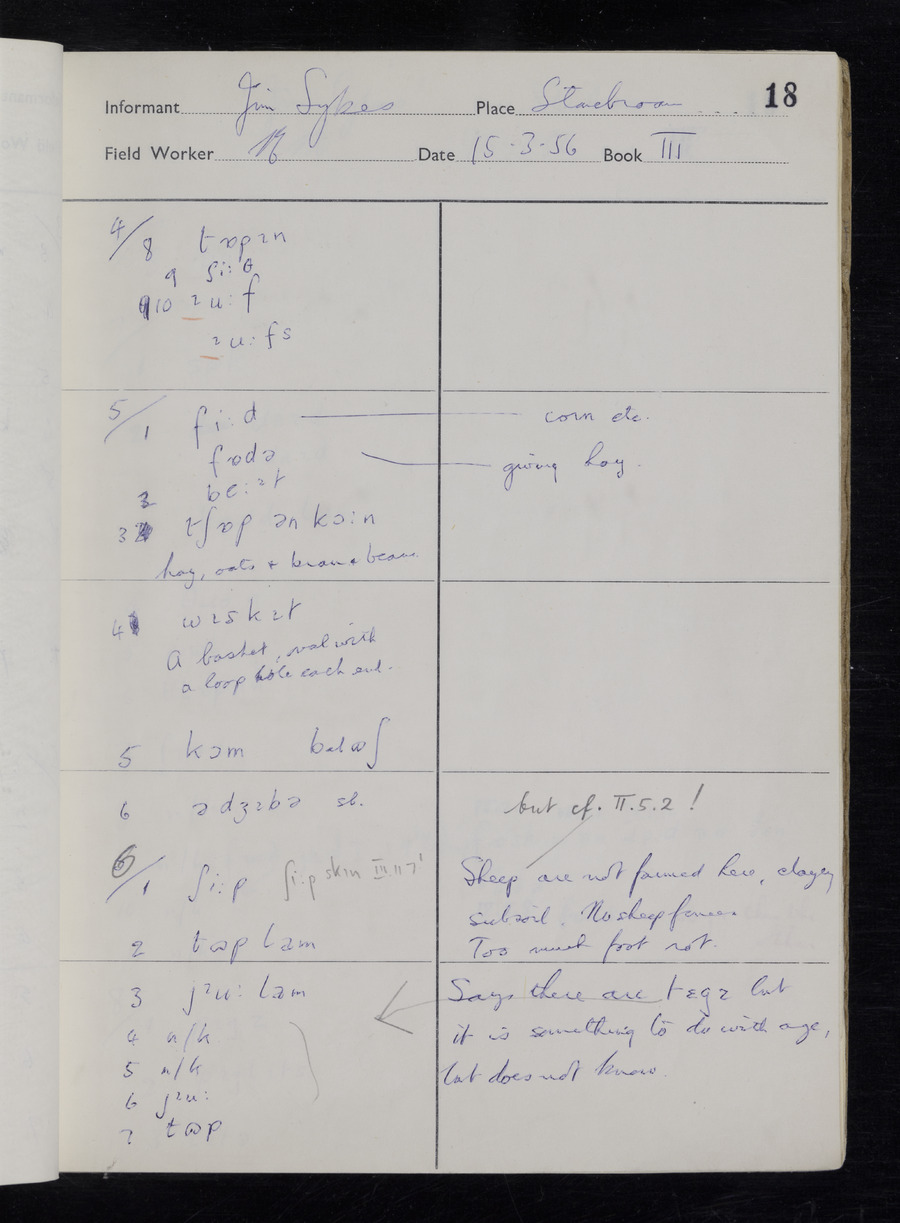 Informant Jim Sykes Place 18
Field Worker Date 15-3-56 Book III
4/8 tɒpɪn
9 ʃi:θ
10 ɪu:f
ɪu:fs
5/1 fi:d corn etc.
fɒdə giving hay.
2 be:ɪt
3 tʃɒp ən kɔ:n
hay, oats + bran + beans
4 wɪskɪt
A basket, oval with
a loop hole each end.
5 kɔm
6 ədʒɪbə sb.
but cf. II.5.2!
6/1 ʃi:p ʃi:p skɪn III.11.7
Sheep are not farmed here, clayey
subsoil. No sheep farmers.
2 tɷp lam Too much foot rot.
3 jɪu: lam Says there are tegz but
4 n/k it is something to do with age,
5 n/k but does not know.
6 jɪu:
7 tɷp